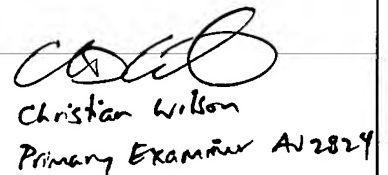 Christian Wilson
Primary Examiner AU2824